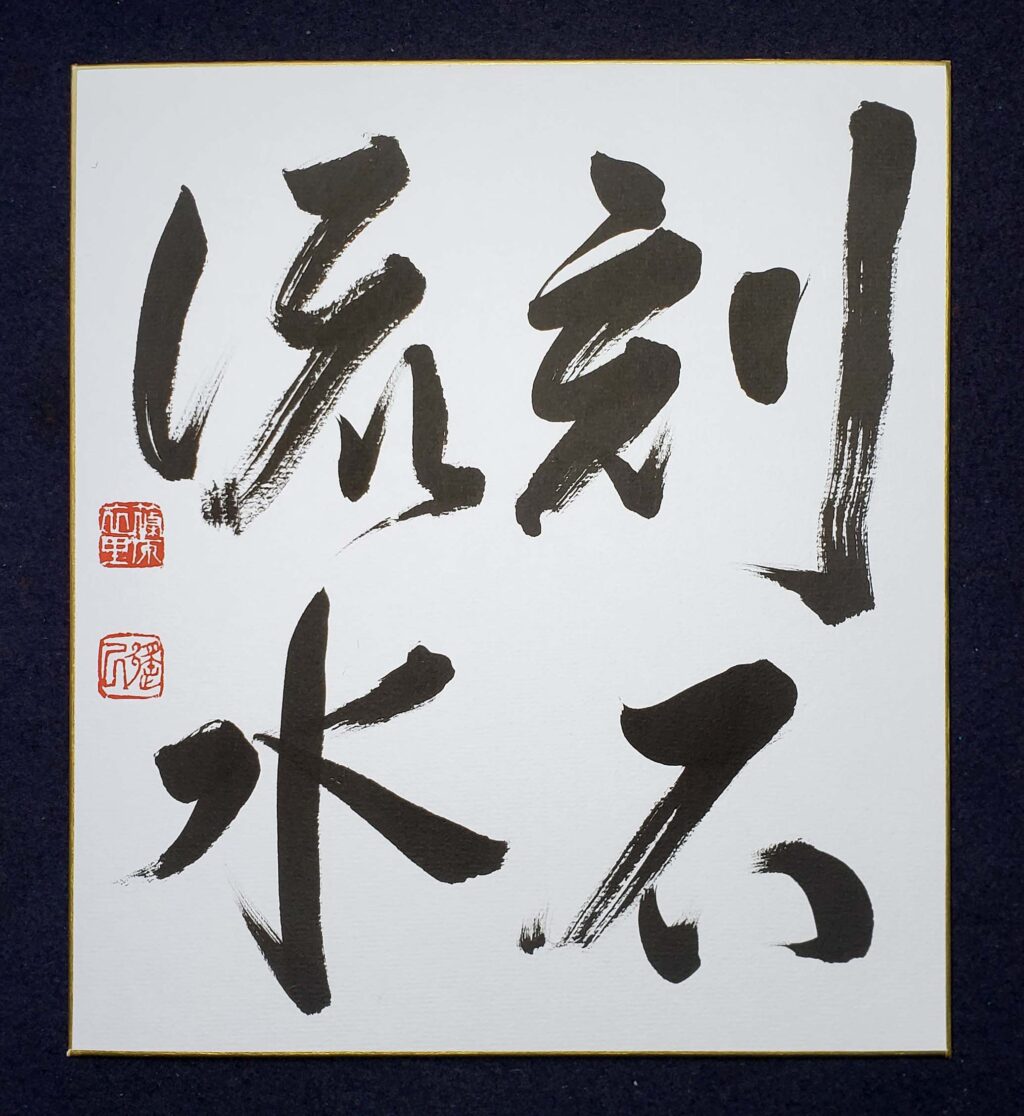 刻石
流水